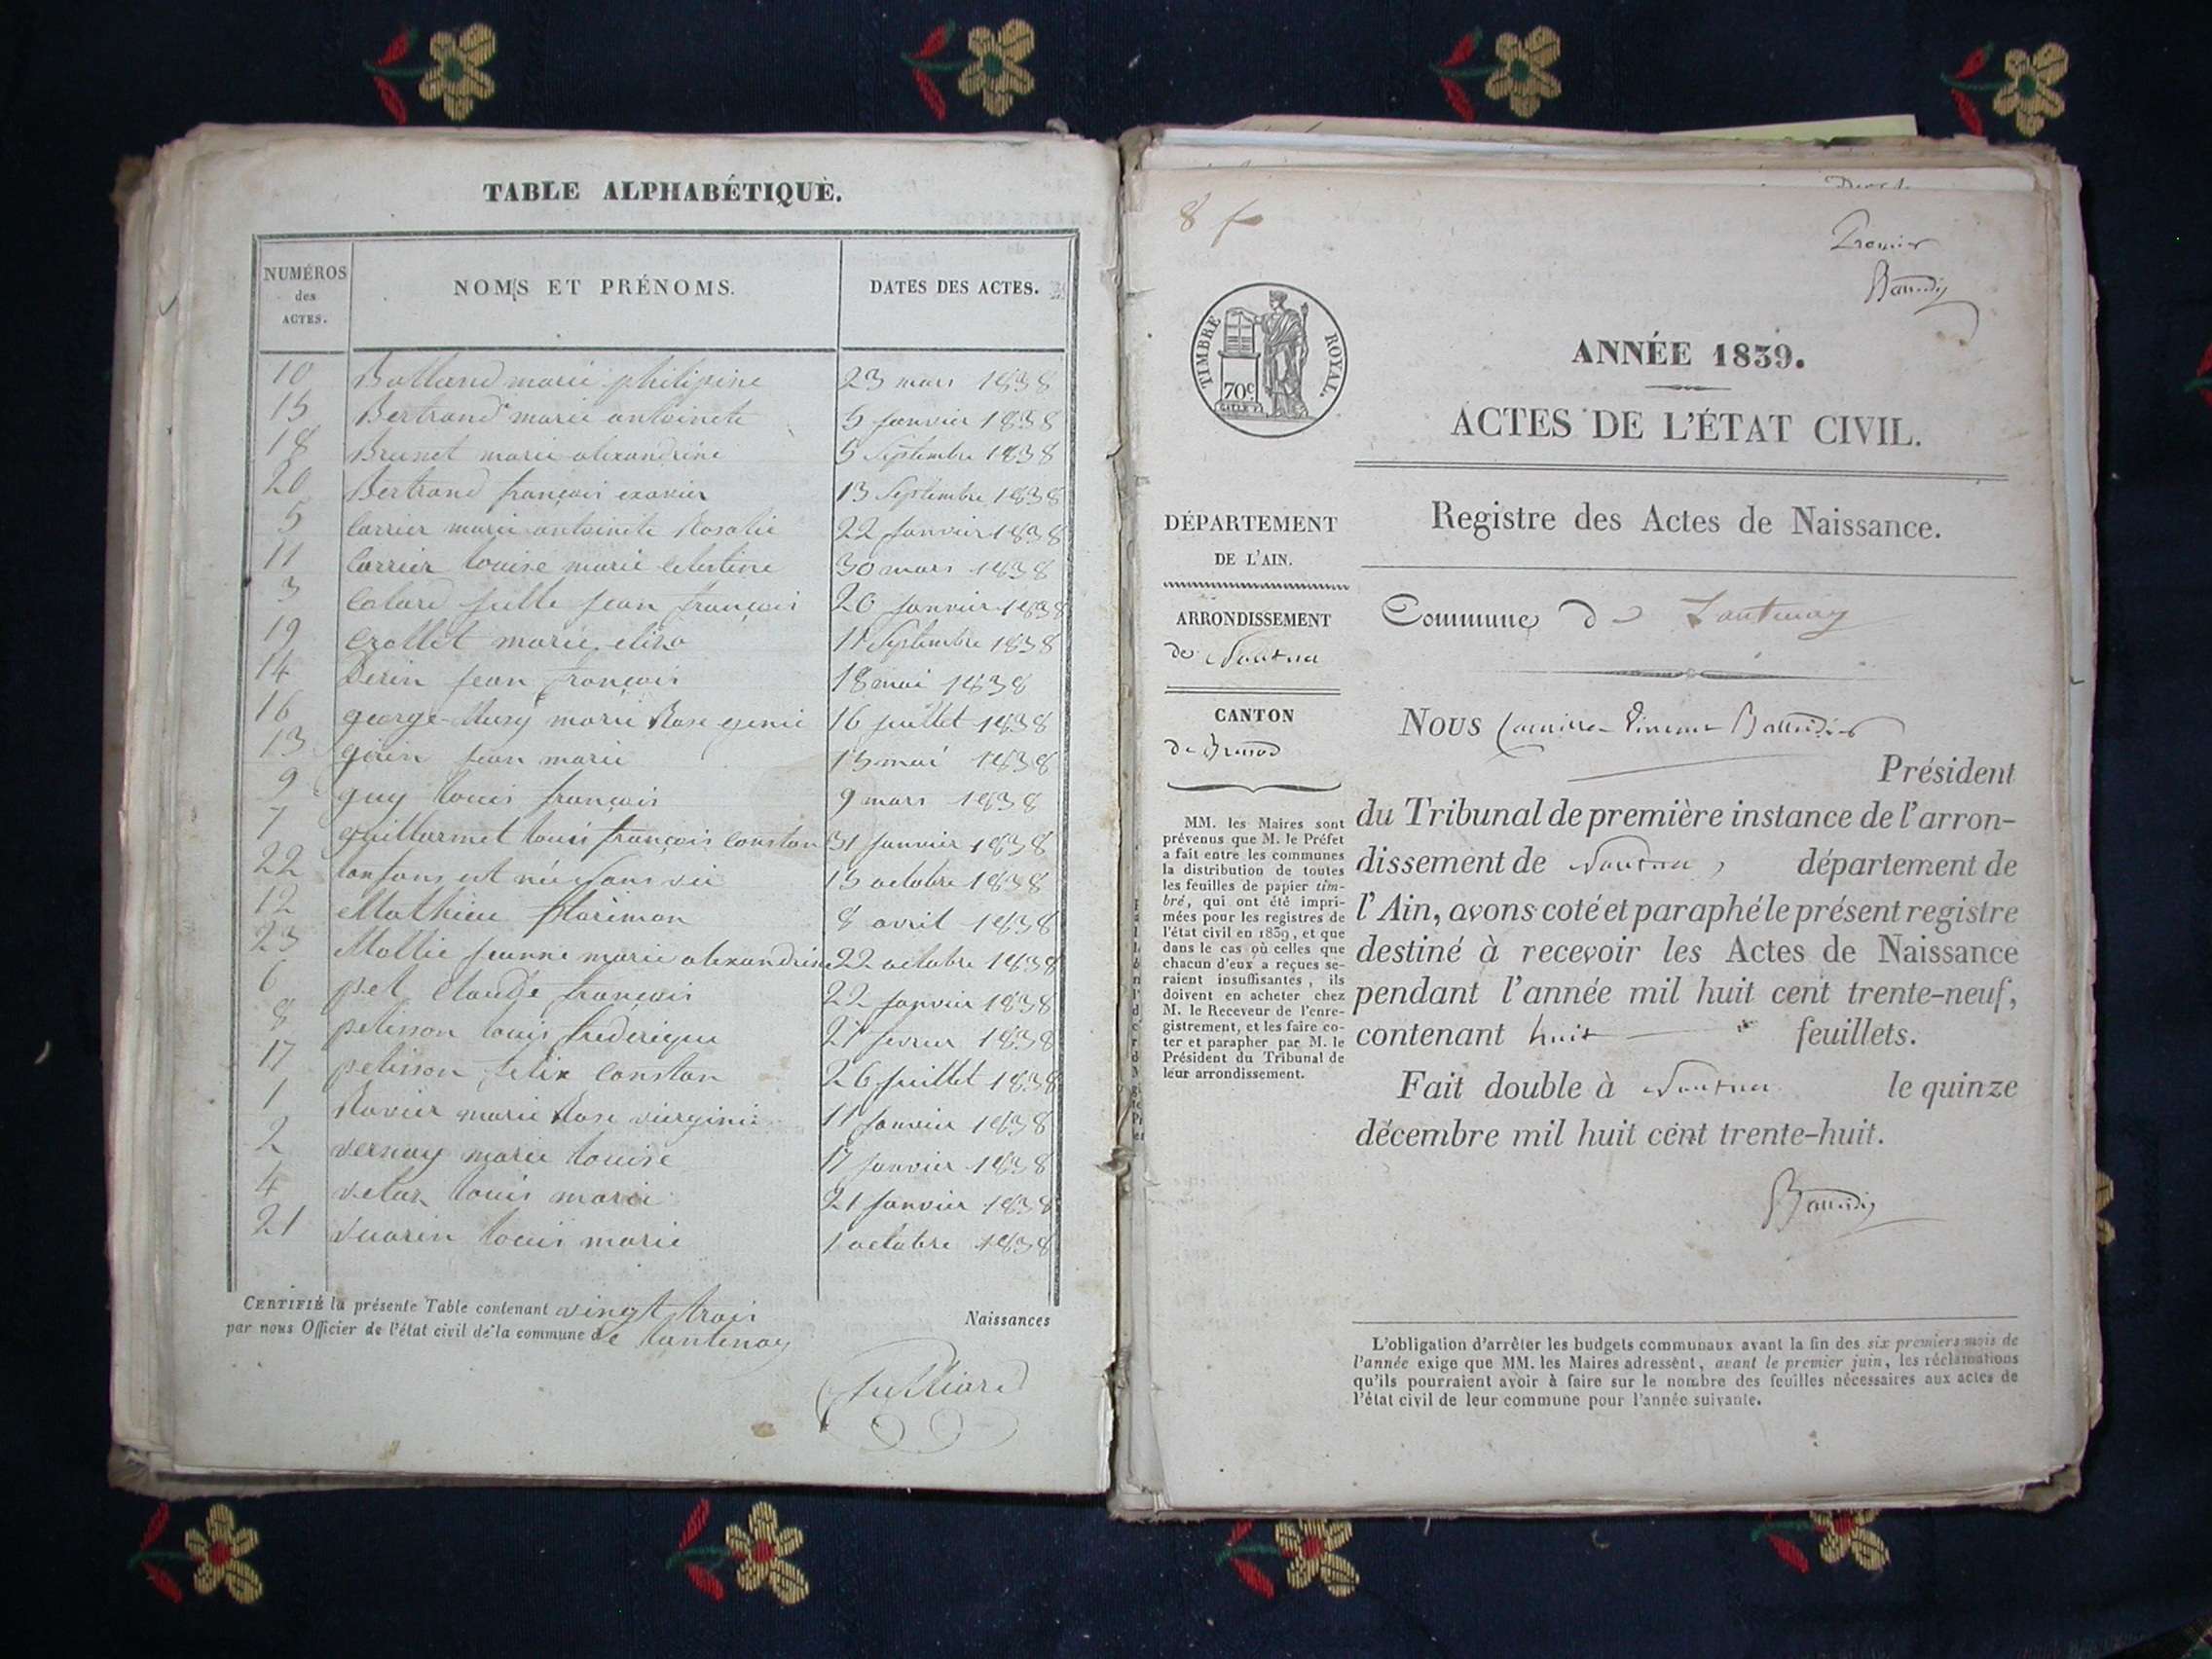 TABLE ALPHABÉTIQUE.
NUMÉROS des ACTES. NOMS ET PRÉNOMS. DATES DES ACTES.
10 Balland marie philipine 23 mars 1838
15 Bertrand marie antoinete 5 janvier 1838
18 Brunet marie alixandrine 5 Septembre 1838
20 Bertrand françois exavier 13 Septembre 1838
5 Carrier marie antoinete Rosalie 22 janvier 1838
11 Carrier louise marie celestine 30 mars 1838
3 Colard jean françois 20 janvier 1838
19 Crollet marie elisa 11 Septembre 1838
14 jean françois 18 mai 1838
16 george marie Rose 16 juillet 1838
13 girin jean marie 15 mai 1838
9 guy louis françois 9 mars 1838
7 guillermet louis françois constan 31 janvier 1838
22 né sans vie 15 octobre 1838
12 Mathieu florimon 8 avril 1838
23 Mollie jeanne marie alexandrine 22 octobre 1838
6 pel claude françois 22 janvier 1838
8 pelisson louis frederique 27 fevrier 1838
17 pelisson felix constan 26 juillet 1838
1 Ravier marie Rose vierginie 11 janvier 1838
2 vernay marie louise 17 janvier 1838
4 louis marie 21 janvier 1838
21 vuarin louis marie 1 octobre 1838
CERTIFIÉ la présente Table contenant vingt trois Naissances
par nous Officier de l'état civil de la commune de lantenay
Julliard
8 f
Premier
Baudin
TIMBRE ROYAL.
70c
ANNÉE 1839.
ACTES DE L'ÉTAT CIVIL.
Registre des Actes de Naissance.
DÉPARTEMENT
DE L'AIN.
ARRONDISSEMENT
de Nantua
CANTON
de Brenod
MM. les Maires sont
prévenus que M. le Préfet
a fait entre les communes
la distribution de toutes
les feuilles de papier tim-
bré, qui ont été impri-
mées pour les registres de
l'état civil en 1839, et que
dans le cas où celles que
chacun d'eux a reçues se-
raient insuffisantes, ils
doivent en acheter chez
M. le Receveur de l'enre-
gistrement, et les faire co-
ter et parapher par M. le
Président du Tribunal de
leur arrondissement.
Commune de Lantenay
NOUS
Président
du Tribunal de première instance de l'arron-
dissement de Nantua, département de
l'Ain, avons coté et paraphé le présent registre
destiné à recevoir les Actes de Naissance
pendant l'année mil huit cent trente-neuf,
contenant huit feuillets.
Fait double à Nantua le quinze
décembre mil huit cent trente-huit.
L'obligation d'arrêter les budgets communaux avant la fin des six premiers mois de
l'année exige que MM. les Maires adressent, avant le premier juin, les réclamations
qu'ils pourraient avoir à faire sur le nombre des feuilles nécessaires aux actes de
l'état civil de leur commune pour l'année suivante.